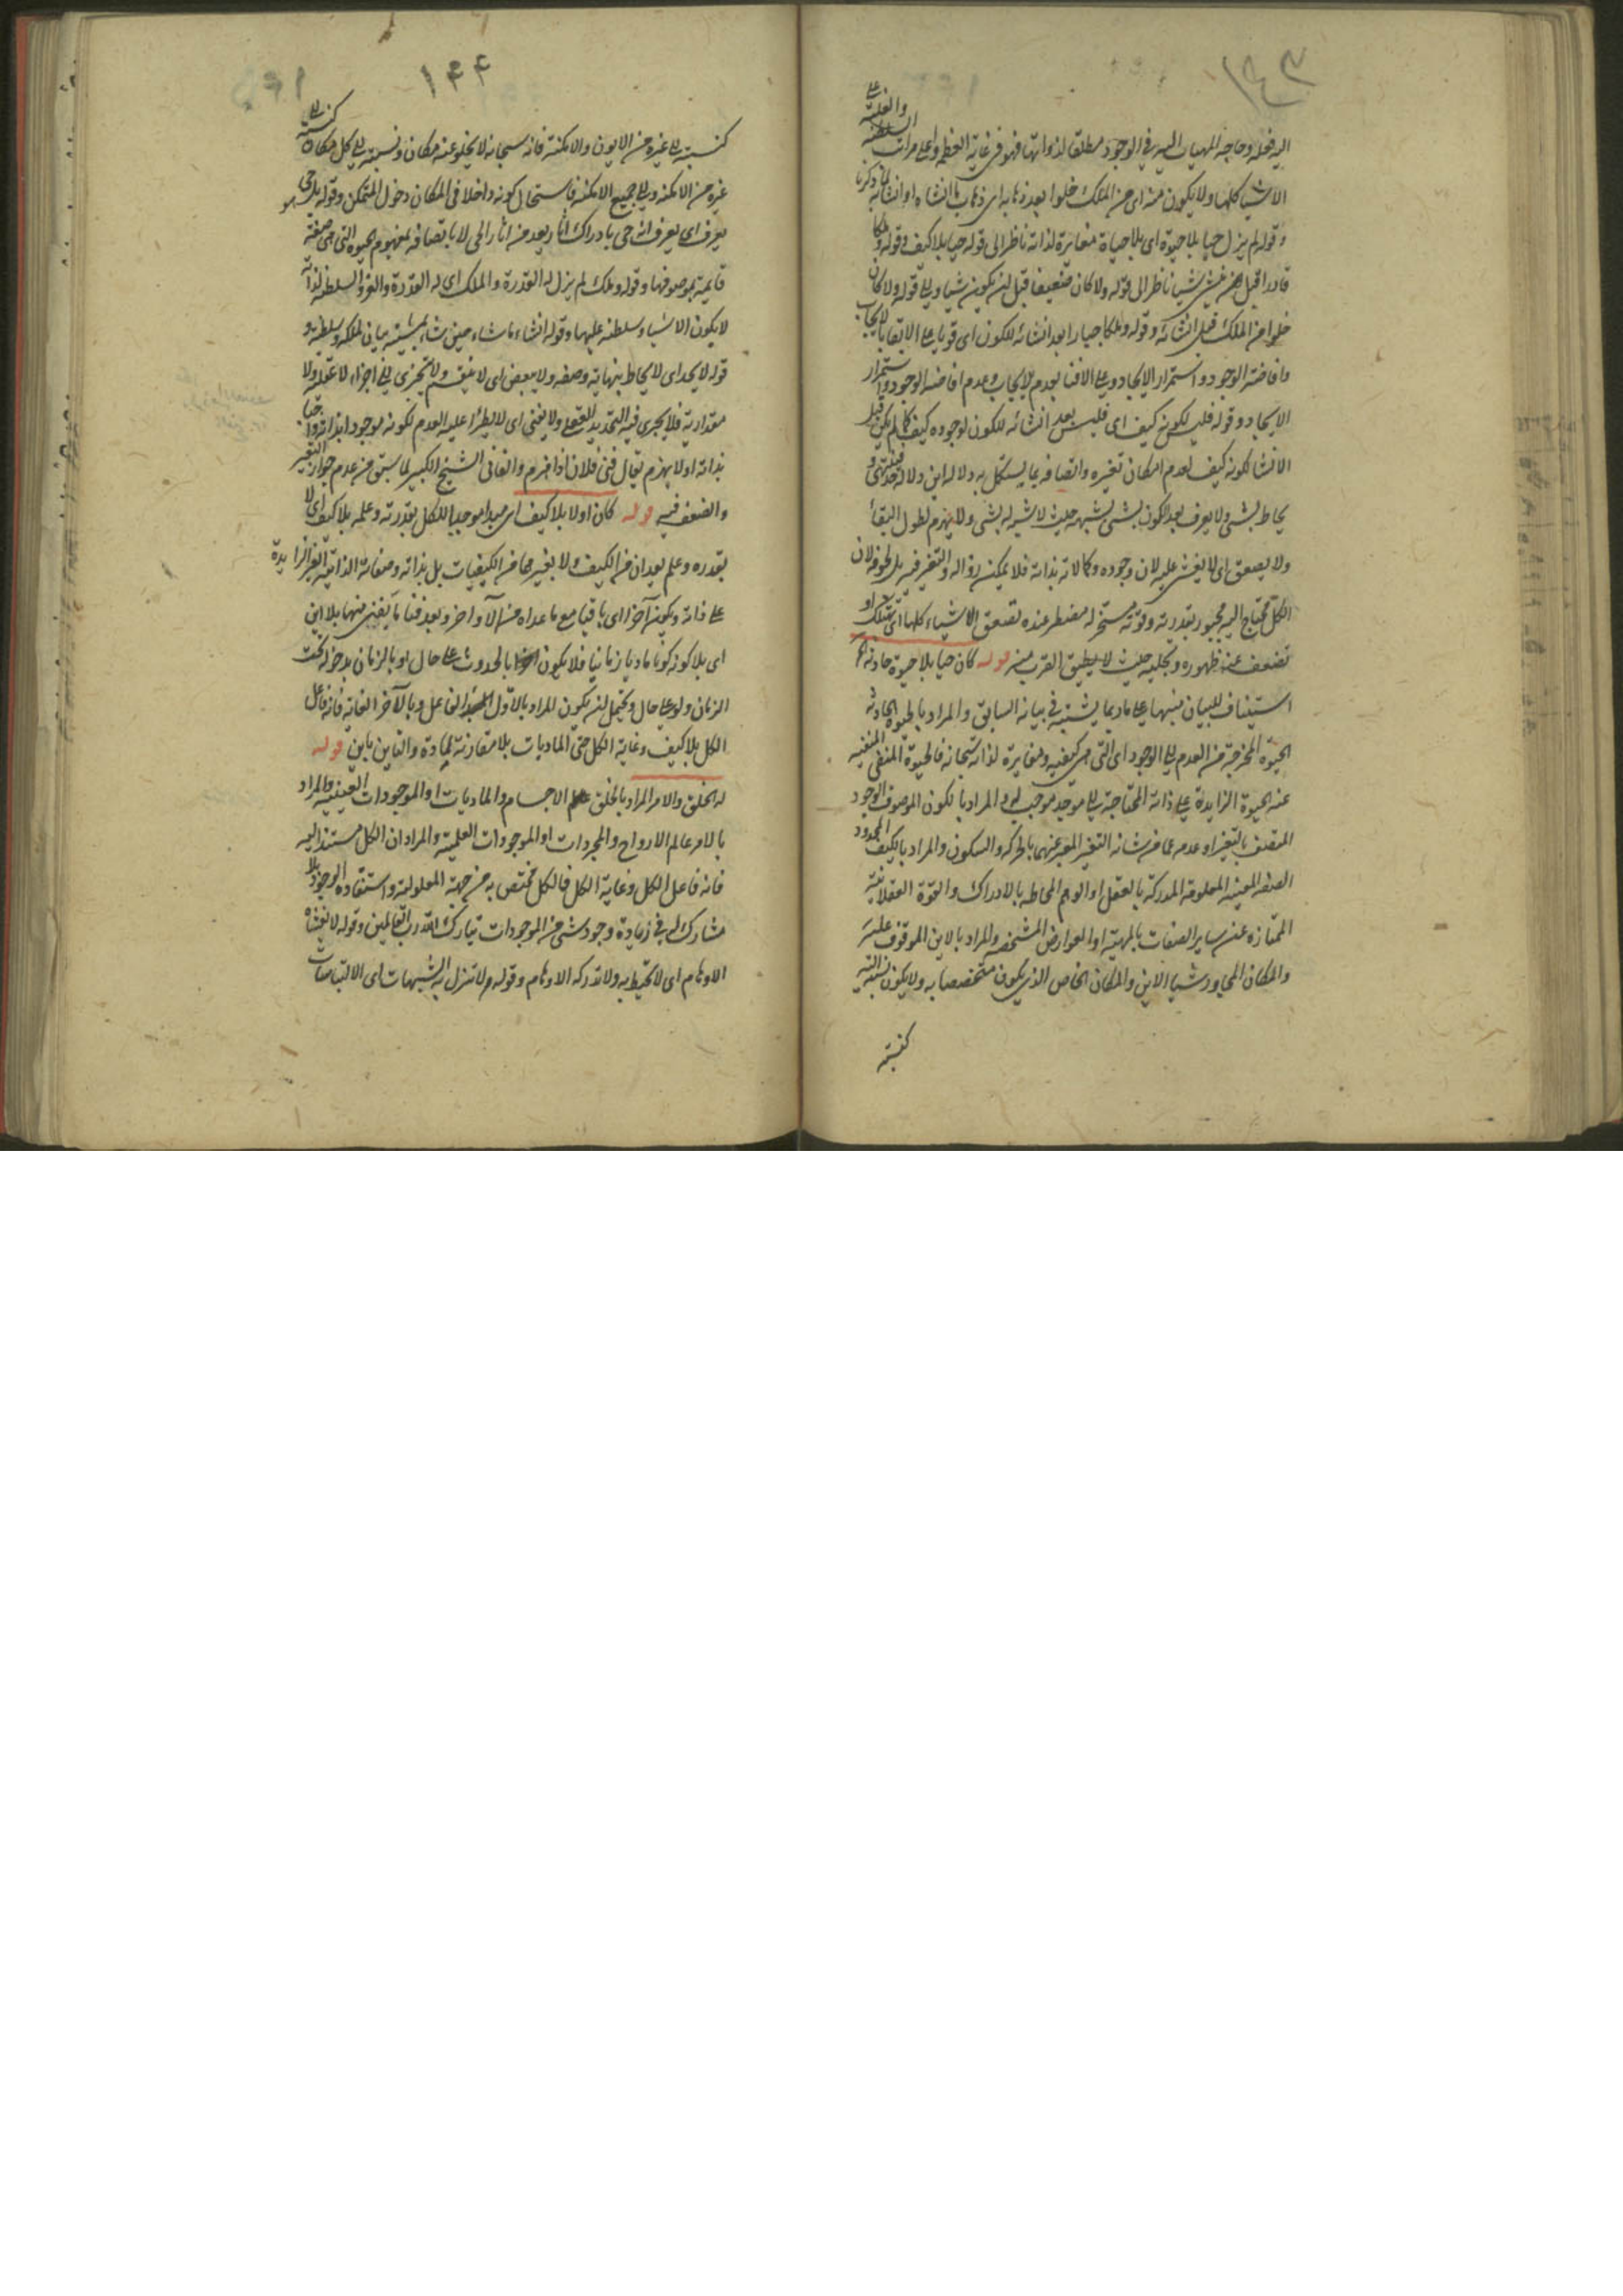 ١٤٣
اليه فعله وحاجه المهيات اليه في الوجود مطلقا لذواتها فهو في غاية العظم واعلى مراتب السلطنة والغلبة على
الاشيا كلها ولا يكون منه اى من الملك خلوا بعد ذهابه اى ذهاب ما انشاه او انشائه لما ذكرنا
وقوله لم يزل حيا بلا حيوة اى بلا حياة مغايرة لذاته ناظر الى قوله حيا بلا كيف وقوله وملكا
قادرا قبل ان ينشئ شيئا ناظر الى قوله ولا كان ضعيفا قبل ان يكون شيا والى قوله ولا كان
خلوا من الملك قبل انشائه وقوله وملكا جبارا بعد انشائه للكون اى قويا على الابقا بالايجاب
وافاضة الوجود واستمرار الايجاد وعلى الافنا بعدم الايجاب وعدم افاضه الوجود واستمرار
الايجاد وقوله فليس لكونه كيف اى فليس بعد انشائه للكون لوجوده كيف كما لم يكن قبل
الانشا لكونه كيف لعدم امكان تغيره واتصافه بما يستكمل به ولا له اين ولا له حد
يحاط بشئ ولا يعرف بعد الكون بشئ يشبهه حيث لا شبه له بشئ ولا يهرم لطول البقاء
ولا يصعق اى لا يغشى عليه لان وجوده وكمالاته بذاته فلا يمكن زواله والتغير فيه بل لخوفه لان
الكل محتاج اليه مجبور بقدرته وقوته مسخر له مضطر عنده تصعق الاشياء كلها اى تهلك او
تضعف عند ظهوره وتجليه حيث لا يطيق القرب منه قوله كان حيا بلا حيوة حادثه
استيناف للبيان منبها على ما ربما يشتبه في بيانه السابق والمراد بالحيوة الحادثه
الحيوة المخرجة من العدم الى الوجود اى التى هى كيفيه ومغايرة لذاته سبحانه فالحيوة المنفى المنفيه
عنه الحيوة الزايدة على ذاته المحتاجة الى موجد موجب له والمراد بالكون الموصوف الوجود
المتصف بالتغير او عدمه عما من شانه التغير المعبر عنهما بالحركه والسكون والمراد بالكيف المحدود
الصفه المعينه المعلومة المدركة بالعقل او الوهم المحاطه بالادراك والقوة العقلانية
الممتازه عن ساير الصفات بالمهية او العوارض المشخصه والمراد بالاين الموقوف عليه
والمكان المجاور شيا الاين والمكان الخاص الذي يكون متخصصا به ولا يكون نسبته اليه
كنسبته
١٤٤
كنسبته الى غيره من الايون والامكنة فانه سبحانه لا يخلو عنه مكان ونسبته الى كل مكان كنسبته الى
غيره من الامكنه والى جميع الامكنه فاستحال كونه داخلا في المكان دخول المتمكن وقوله بل حي
يعرف اى يعرف انه حى بادراك اثار يعد من اثار الحى لا باتصافه بمفهوم الحيوة التى هى صفة
قايمة بموصوفها وقوله وملك لم يزل له القدرة والملك اى له القدرة والعز والسلطنه لذاته
لا يكون الاشياء وسلطنه عليها وقوله انشاء ما شاء حين شاء بمشيته بيان لملكه وسلطنه و
قوله لا يحد اى لا يحاط بنهايته وصفه ولا يبعض اى لا ينقسم ولا يتجزى الى اجزاء لا عقلية ولا
مقدارية فلا يجرى فيه التحديد للفعل ولا يفنى اى لا يطرأ عليه العدم لكونه موجودا بذاته واجبا
بذاته اولا يهرم يقال فنى فلان اذا هرم والفانى الشيخ الكبير لما سبق من عدم جواز التغير
والضعف فيه قوله كان اولا بلا كيف اى مبدا موجدا للكل بقدرته وعلمه بلا كيف اى لا
بقدره وعلم يعدان من الكيف ولا بغيرهما من الكيفيات بل بذاته وصفاته الذاتية الغير الزايدة
على ذاته ويكون آخرا اى باقيا مع ما عداه من الاواخر وبعد فناء ما يفنى منها بلا اين
اى بلا كونه كونا ماديا زمانيا فلا يكون بالحدوث على حال او بالزمان بدخوله تحت
الزمان ولو على حال ويحتمل ان يكون المراد بالاول الفاعل وبالآخر الغاية فانه فاعل
الكل بلا كيف وغاية الكل حتى الماديات بلا مقارنة لمادة والتاين باين قوله
له الخلق والامر المراد بالخلق عالم الاجسام والماديات او الموجودات العينيه والمراد
بالامر عالم الارواح والمجردات او الموجودات العلمية والمراد ان الكل مستند اليه
فانه فاعل الكل وغاية الكل فالكل مختص به من جهة المعلولية واستفادة الوجود بلا
مشارك له في زيادة وجود شئ من الموجودات تبارك الله رب العالمين وقوله لا تغشاه
الاوهام اى لا تحيط به ولا تدركه الاوهام وقوله ولا تنزل به الشبهات اى الالتباسات